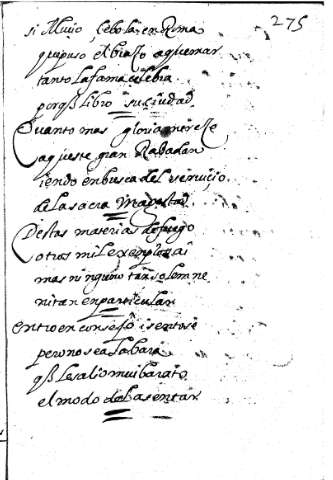 275
si Mucio, Cebola en Roma
q puso el braço a quemar
tanto la fama celebra
porq̃ libro su ciudad
Quanto mas gloria merese
aqueste gran Rabadan
iendo en busca del serviçio
de la sacra Magestad
Destas materias de fuego
otros mil exemplos ai
mas ninguno tan solemne
ni tan en particular
entro en consejo i sentose
pero no se alabara
q̃ le salio mui barato
el modo de asentar